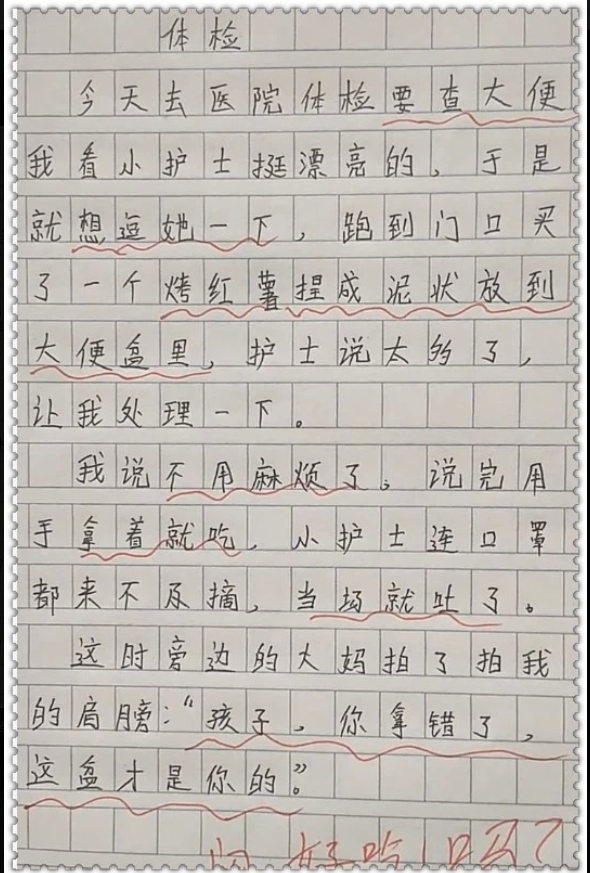 体检
今天去医院体检要查大便
我看小护士挺漂亮的，于是
就想逗她一下，跑到门口买
了一个烤红薯捏成泥状放到
大便盒里，护士说太多了，
让我处理一下。
我说不用麻烦了。说完用
手拿着就吃，小护士连口罩
都来不及摘，当场就吐了。
这时旁边的大妈拍了拍我
的肩膀：“孩子，你拿错了，
这盒才是你的。”